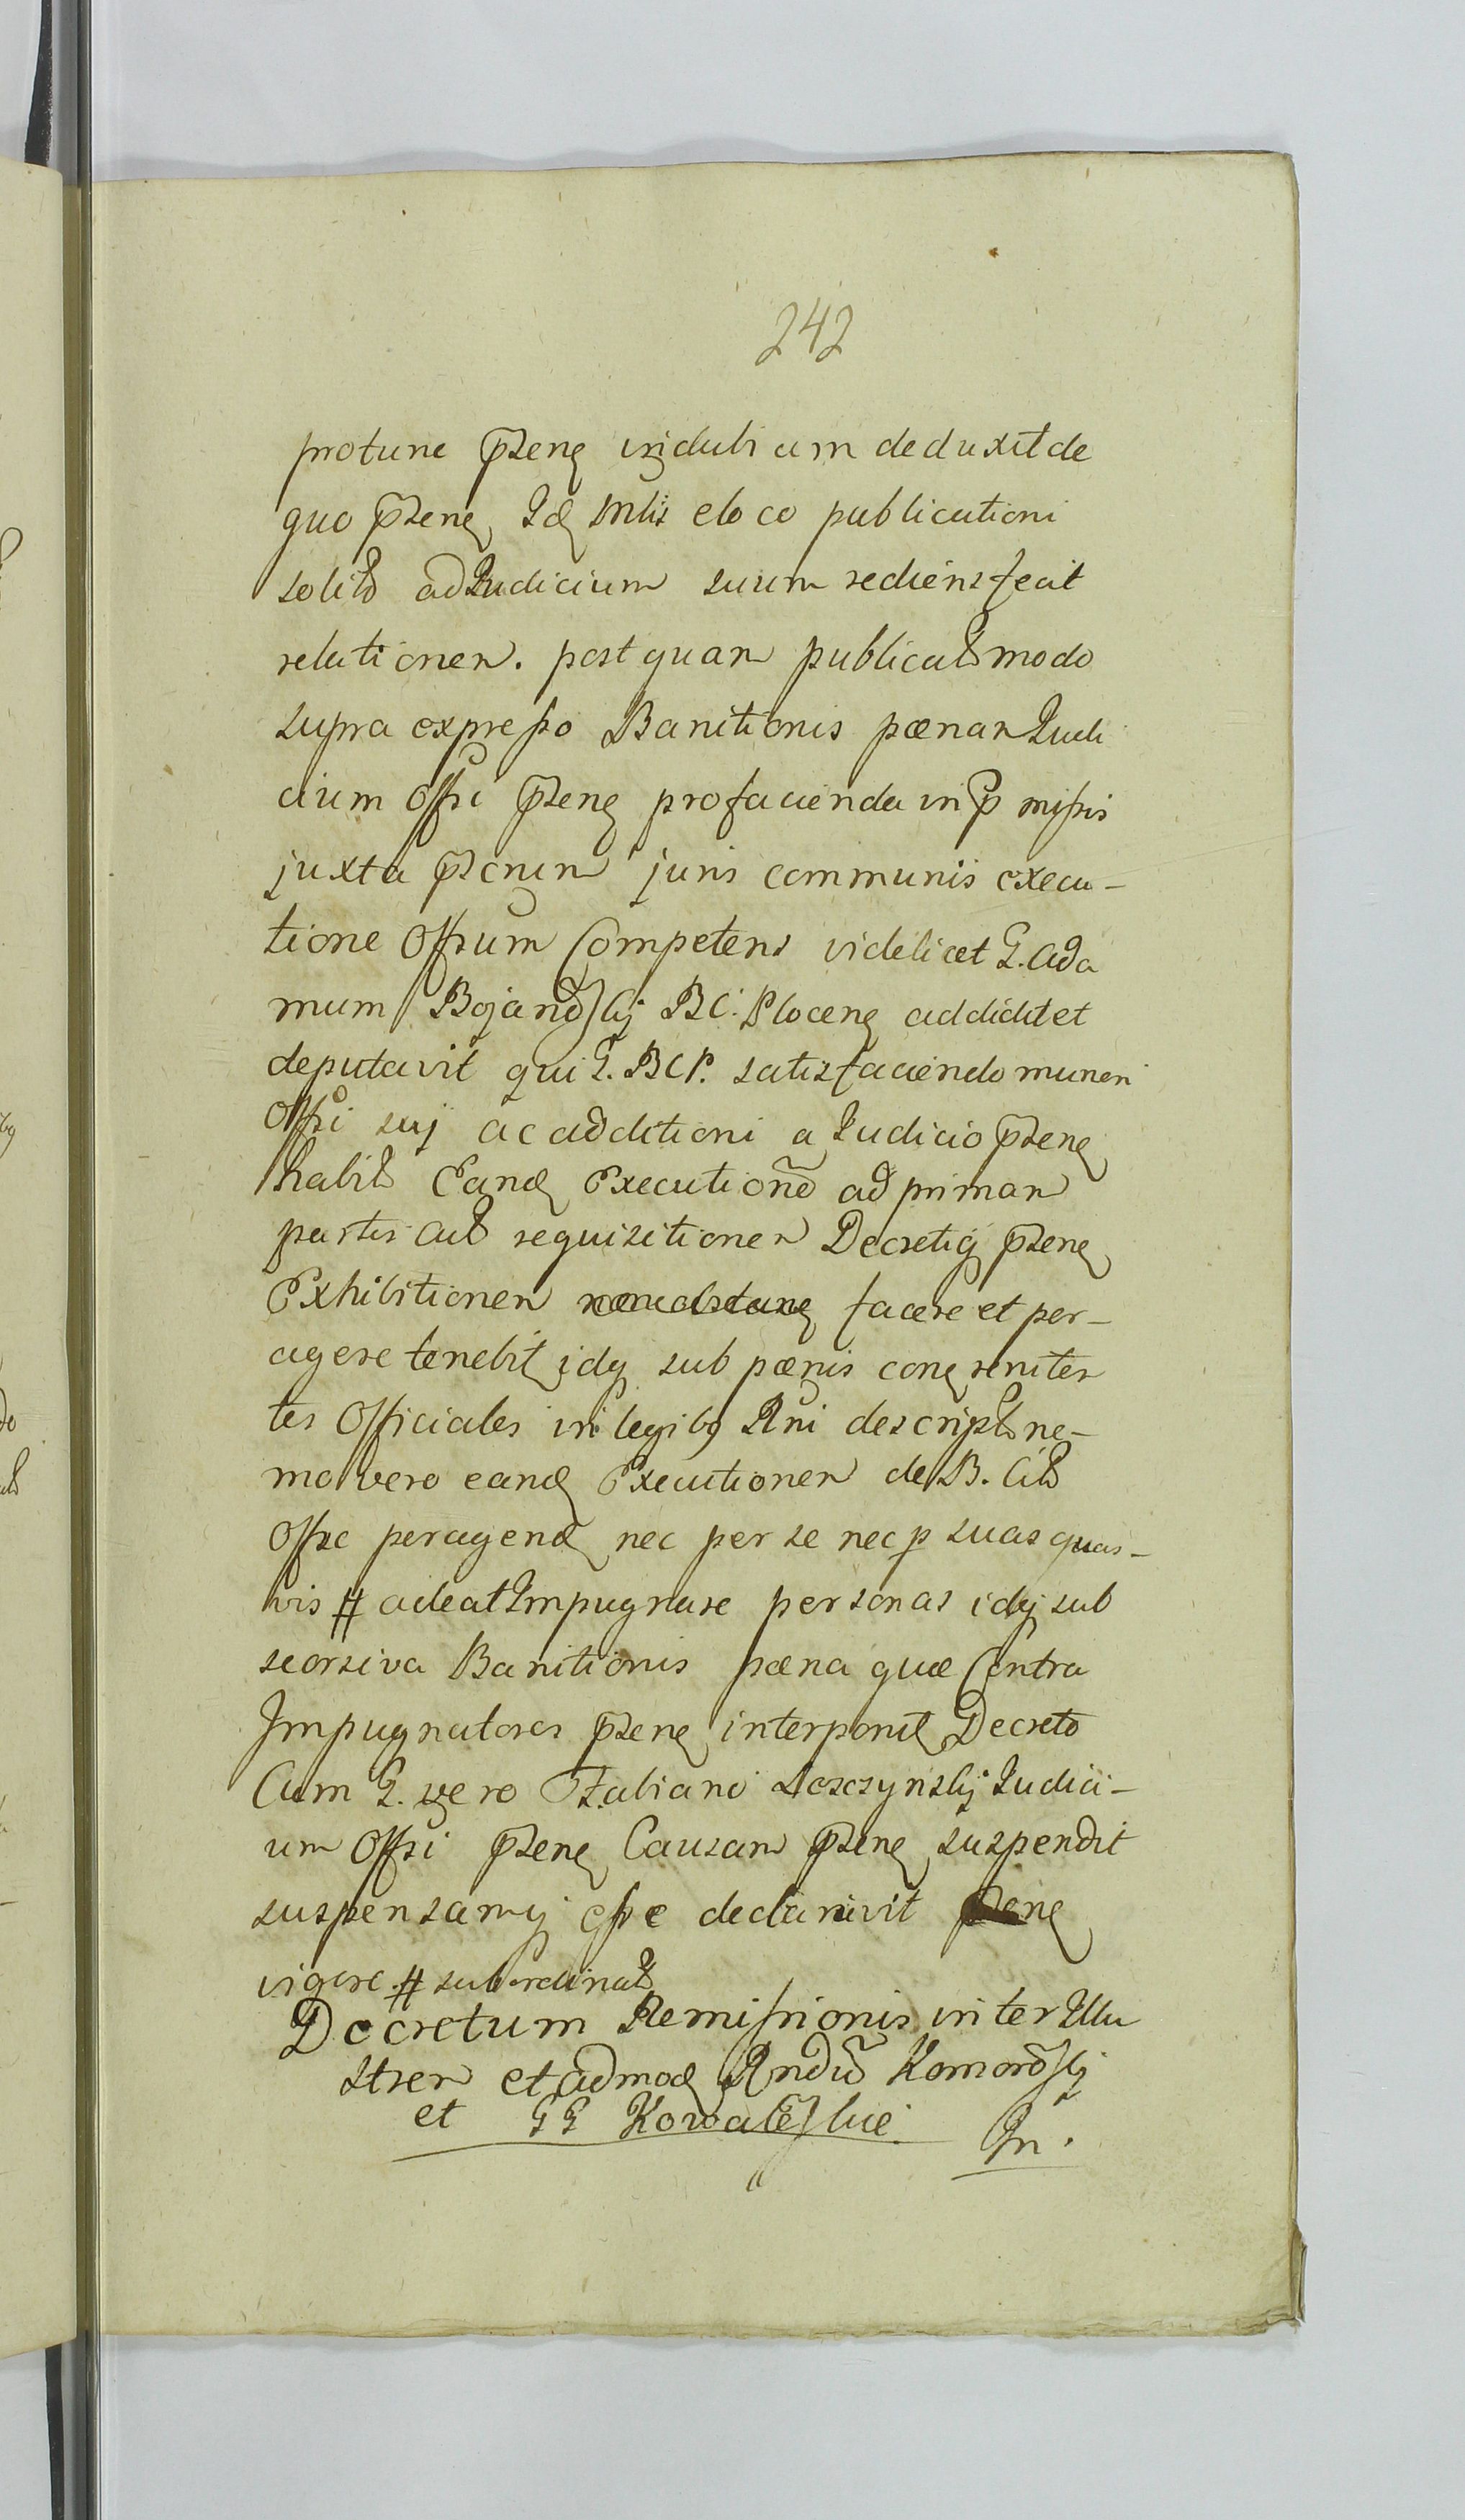 242
protunc pseng indubi um deduxit de
quo pseng Id Mlis e loco publicationi
solito ad Judicium suum rediens fecit
relationem. postquam publicat modo
supra expresso Banitionis pœnam Judi
cium Offi pseng profacienda in p missis
juxta psenm juris communis execu-
tione Offium Competens videlicet G. Ada
mum Bojanoski BC. Ploceng addidit et
deputavit qui G. BCP. satisfaciendo muneri
Offi suj ac additioni a Judicio pseng
habit Eand Executione ad primam
partis Act requisitionem Decretiq pseng
Exhibitionem facere et per-
agere tenebit idq sub pœnis cong reniten
tes Officiales in legibq Rni descript ne-
mo vero eand Executionem de B. Cit
Offic peragend nec per se nec p suas quas-
vis # adeat Impugnare personas idq sub
seorsiva Banitionis pœna quæ Contra
Impugnatores pseng interponit Decreto
Cum G. vero Fabiano Leszczynskj Judici-
um Offi pseng Causam pseng suspendit
suspensamq esse declaravit pseng
vigore # subordinat
Decretum Remissionis inter Illu
strem et admod Rndu Komorowskj
et GG Kowaleskie In.